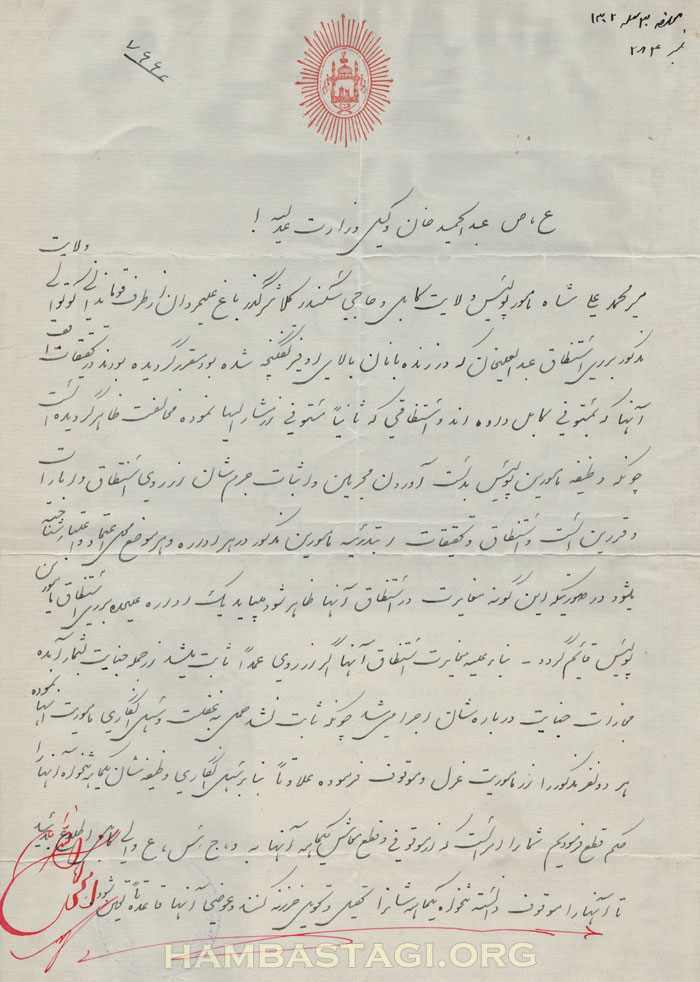 ۱۳۰۲
نمبر ۲۸۴
۷۶۶۶
ع، ص عبدالحمید خان وکیل وزارت عدلیه !
میر محمد علی شاه مامور پولیس ولایت کابل و حاجی سکندر کلانتر گذر باغ علیمردان از طرف قوماندانی کوتوالی ولایت
مذکور برای استنطاق عبدالعلیخان که در زنده بانان بالای او فیر تفنگچه شده بود مقرر گردیده بودند در تحقیقات
آنها که بمستوفی کابل داده اند و استنطاقی که ثانیاً مستوفی از مشارالیها نموده مخالفت ظاهر گردیده است
چونکه وظیفه مامورین پولیس بدست آوردن مجرمین و اثبات جرم شان از روی استنطاق و امارات
و قرین است و استنطاق و تحقیقات ابتدائیه مامورین مذکور در هر اداره و هر موضع محل اعتماد و اعتبار شناخته
میشود در صورتیکه این گونه مغایرت در استنطاق آنها ظاهر شود میباید یک اداره علیحده برای استنطاق مامورین
پولیس قائم گردد - بنابر علیه مغایرت استنطاق آنها اگر از روی عمداً ثابت میشد از جمله جنایت بشمار آمده
مجازات جنایت درباره شان اجرا می شد چونکه ثابت نشد حمل به غفلت و سهل انگاری ماموریت آنها نموده
هر دو نفر مذکور را از ماموریت عزل و موقوف فرموده علاوتاً بنابر سهل انگاری وظیفه شان یکماهه تنخواه آنها را
حکم قطع فرمودیم شما را امر است که از موقوفی و قطع معاش یکماهه آنها به و، ج، ش، ع والی کابل اطلاع بدهید
تا آنها را موقوف دانسته تنخواه یکماهه شانرا تحصیل و تحویل خزانه کنند و عوضی آنها قاعدتاً تعین شود
HAMBASTAGI.ORG